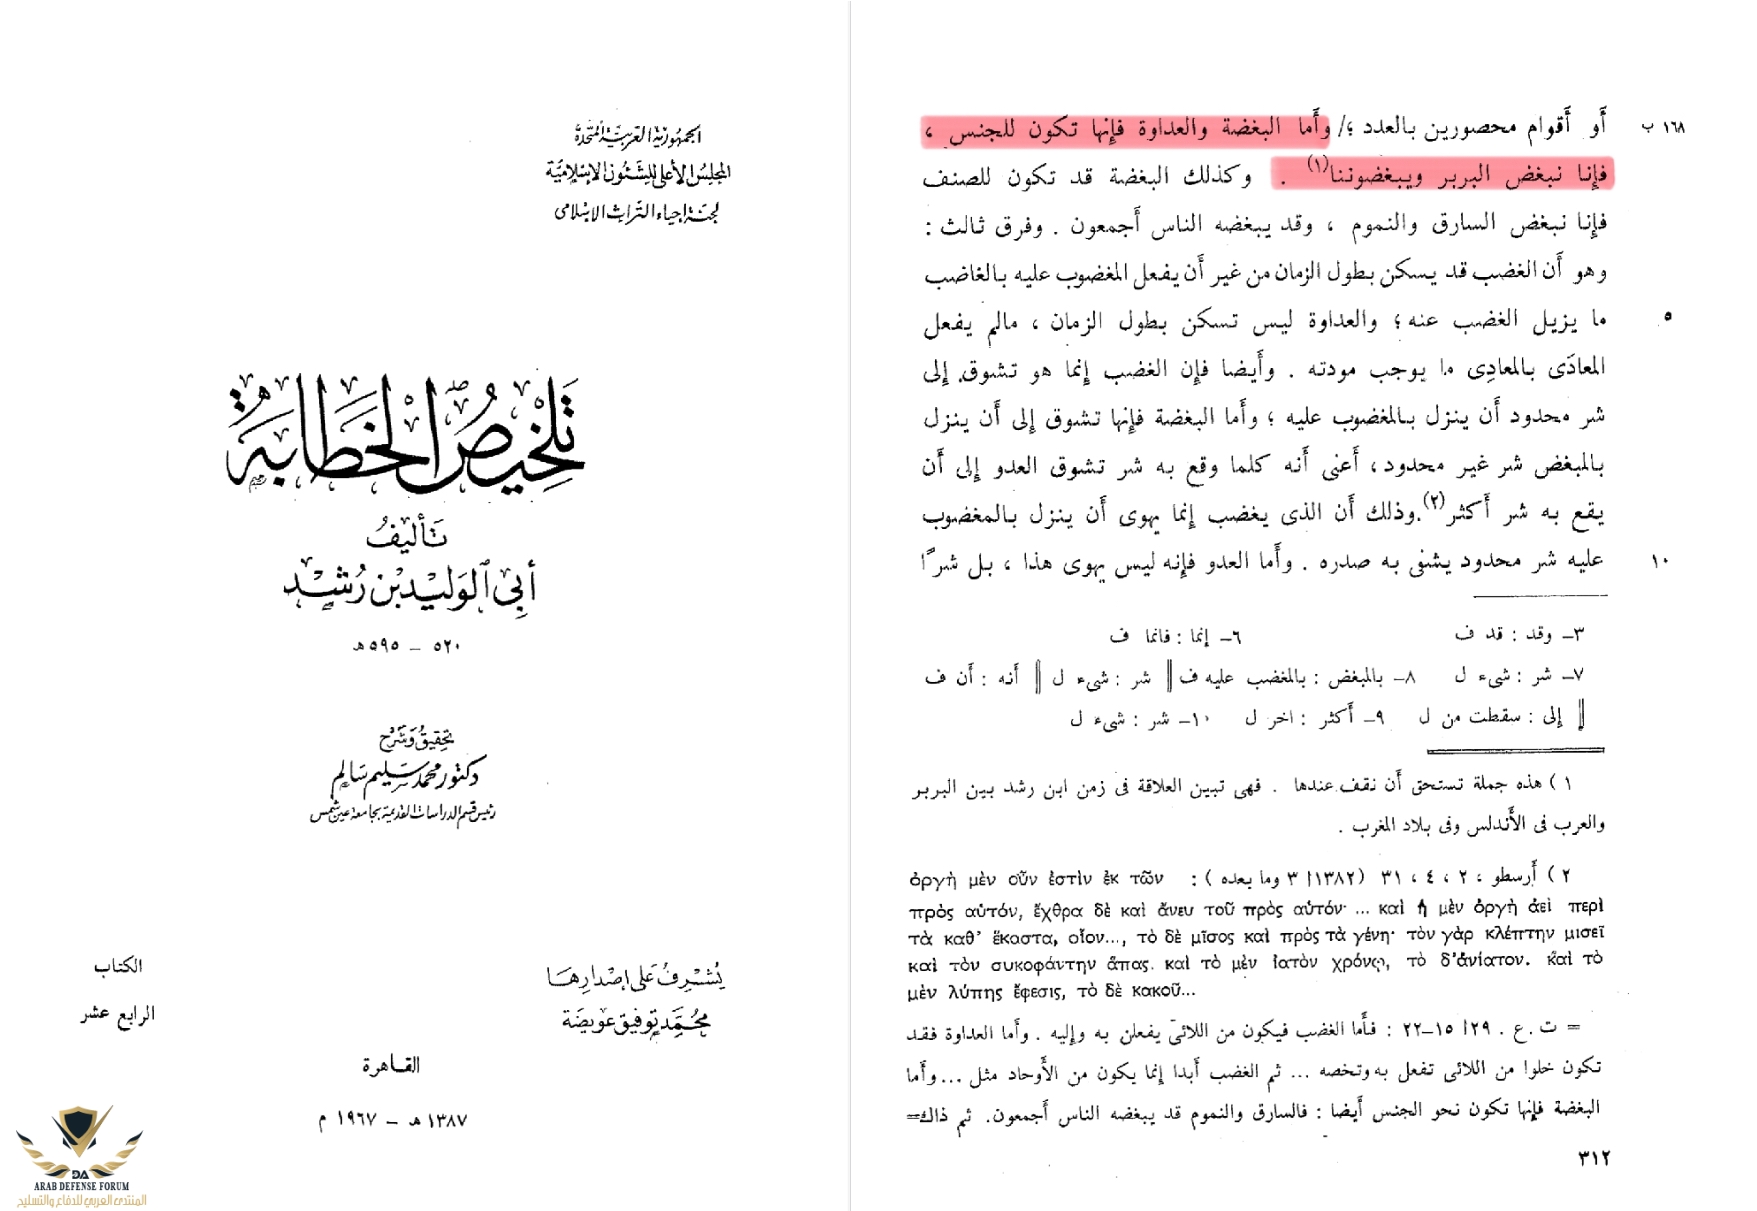 الجمهورية العربية المتحدة
المجلس الأعلى للشئون الإسلامية
لجنة إحياء التراث الإسلامى
تلخيص الخطابة
تأليف
أبي الوليد بن رشد
٥٢٠ – ٥٩٥ هـ
تحقيق وشرح
دكتور محمد سليم سالم
رئيس قسم الدراسات القديمة بجامعة عين شمس
يشرف على إصدارها
محمد توفيق عويضة
الكتاب
الرابع عشر
القاهرة
١٣٨٧ هـ – ١٩٦٧ م
DA
ARAB DEFENSE FORUM
المنتدى العربي للدفاع والتسليح
١٦٨ ب
أو أقوام محصورين بالعدد ؛/ وأما البغضة والعداوة فإنها تكون للجنس ،
فإنا نبغض البربر ويبغضوننا(١) . وكذلك البغضة قد تكون للصنف
فإنا نبغض السارق والنموم ، وقد يبغضه الناس أجمعون . وفرق ثالث :
وهو أن الغضب قد يسكن بطول الزمان من غير أن يفعل المغضوب عليه بالغاضب
٥ ما يزيل الغضب عنه ؛ والعداوة ليس تسكن بطول الزمان ، مالم يفعل
المعادَى بالمعادِى ما يوجب مودته . وأيضا فإن الغضب إنما هو تشوق إلى
شر محدود أن ينزل بالمغضوب عليه ؛ وأما البغضة فإنها تشوق إلى أن ينزل
بالمبغض شر غير محدود ، أعنى أنه كلما وقع به شر تشوق العدو إلى أن
يقع به شر أكثر(٢). وذلك أن الذى يغضب إنما يهوى أن ينزل بالمغضوب
١٠ عليه شر محدود يشفى به صدره . وأما العدو فإنه ليس يهوى هذا ، بل شرًّا
٣– وقد : قد ف ٦– إنما : فانما ف
٧– شر : شىء ل ٨– بالمبغض : بالمغضب عليه ف ‖ شر : شىء ل ‖ أنه : أن ف
‖ إلى : سقطت من ل ٩– أكثر : اخر ل ١٠– شر : شىء ل
١ ) هذه جملة تستحق أن نقف عندها . فهى تبين العلاقة فى زمن ابن رشد بين البربر
والعرب فى الأندلس وفى بلاد المغرب .
٢ ) أرسطو ، ٢ ، ٤ ، ٣١ (١٣٨٢ا ٣ وما بعده ) : ὀργὴ μὲν οὖν ἐστὶν ἐκ τῶν
πρὸς αὑτόν, ἔχθρα δὲ καὶ ἄνευ τοῦ πρὸς αὑτόν· ... καὶ ἡ μὲν ὀργὴ ἀεὶ περὶ
τὰ καθ’ ἕκαστα, οἷον..., τὸ δὲ μῖσος καὶ πρὸς τὰ γένη· τὸν γὰρ κλέπτην μισεῖ
καὶ τὸν συκοφάντην ἅπας. καὶ τὸ μὲν ἰατὸν χρόνῳ, τὸ δ’ἀνίατον. καὶ τὸ
μὲν λύπης ἔφεσις, τὸ δὲ κακοῦ...
= ت . ع . ٢٩ا ١٥–٢٢ : فأما الغضب فيكون من اللائى يفعلن به وإليه . وأما العداوة فقد
تكون خلوا من اللائى تفعل به وتخصه ... ثم الغضب أبدا إنما يكون من الأوحاد مثل ... وأما
البغضة فإنها تكون نحو الجنس أيضا : فالسارق والنموم قد يبغضه الناس أجمعون. ثم ذاك=
٣١٢